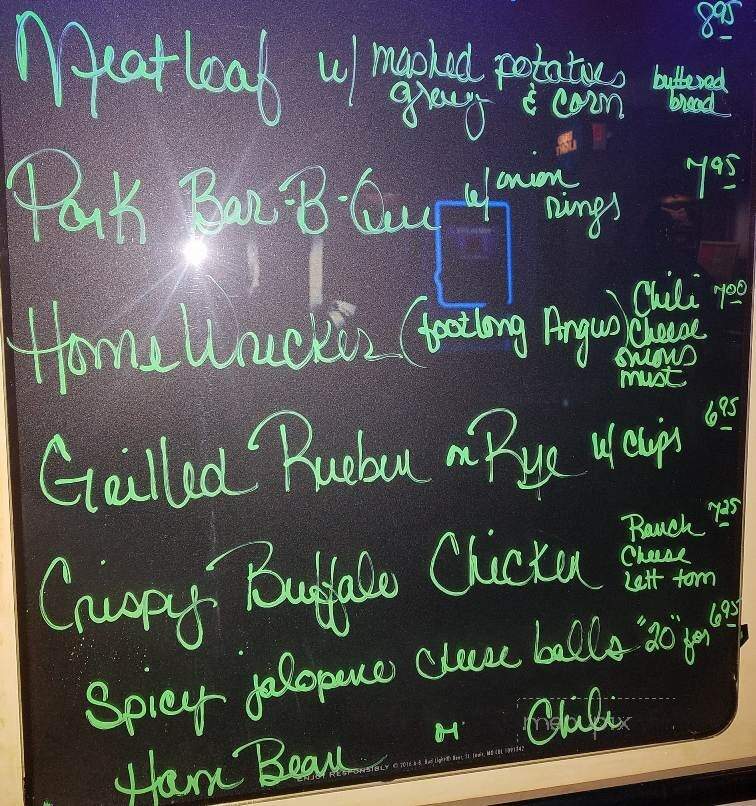 Meatloaf w/ mashed potatoes gravy & corn buttered bread 8.95
Pork Bar-B-Que w/ onion rings 7.95
HomeWrecker (footlong Angus) Chili Cheese onions must 7.00
Grilled Rueben on Rye w/ chips 6.95
Crispy Buffalo Chicken Ranch Cheese Lett tom 7.25
Spicy jalopeno cheese balls "20" for 6.95
Ham Bean or Chili
menupix
ENJOY RESPONSIBLY © 2016 A-B, Bud Light® Beer, St. Louis, MO